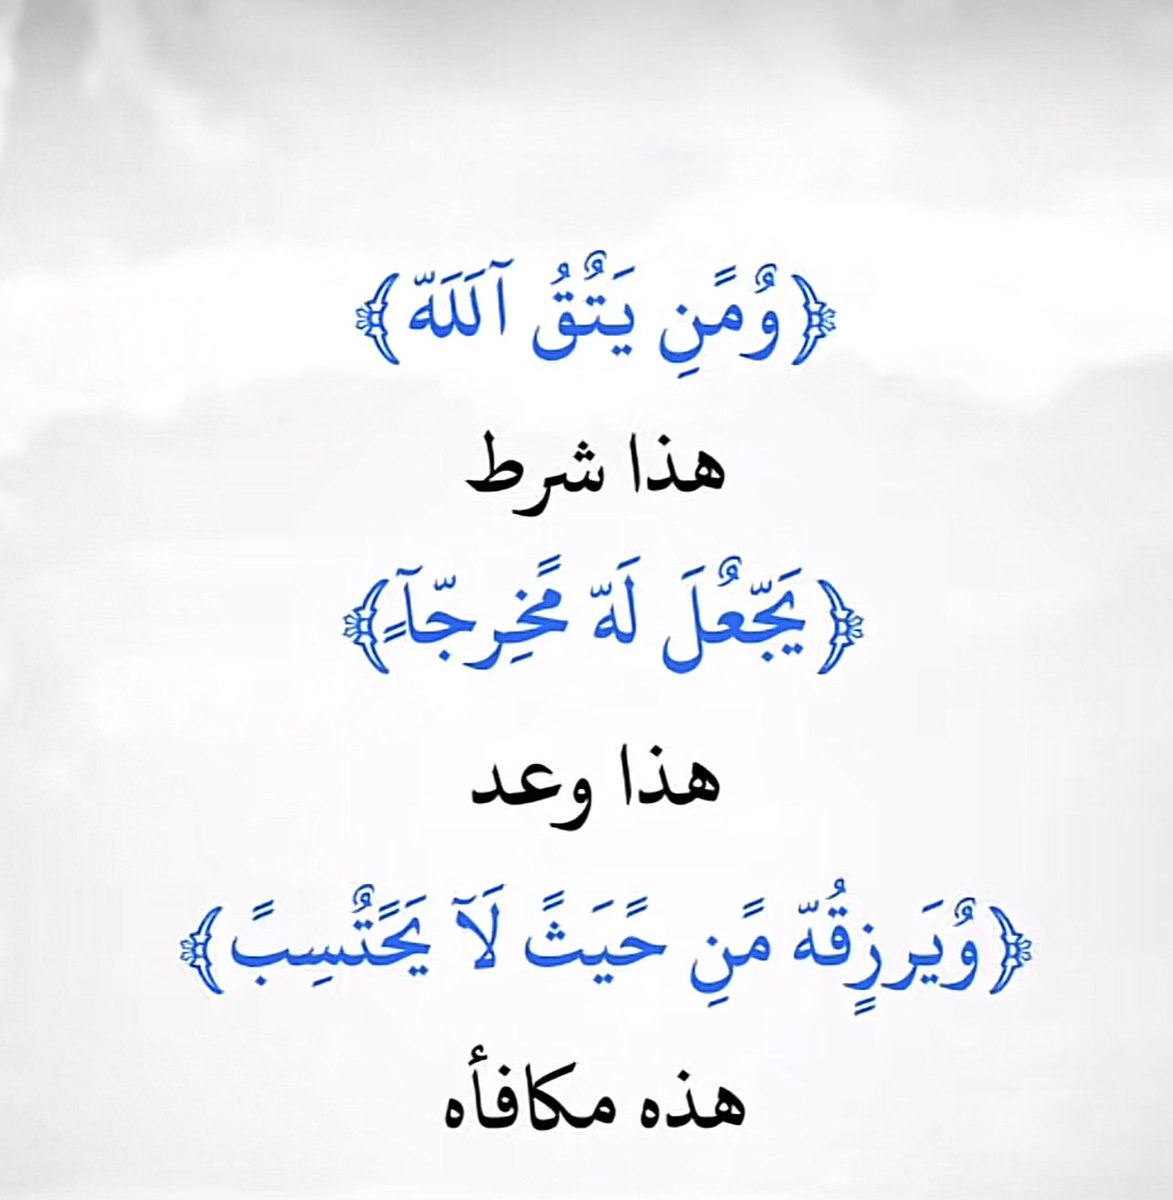 ﴿وُمًنِ يَتٌقُ آلَلَهّ﴾
هذا شرط
﴿يَجّعٌلَ لَهّ مًخِرجّآ﴾
هذا وعد
﴿وُيَرزٍقُهّ مًنِ حًيَثً لَآ يَحًتٌسِبً﴾
هذه مكافأه